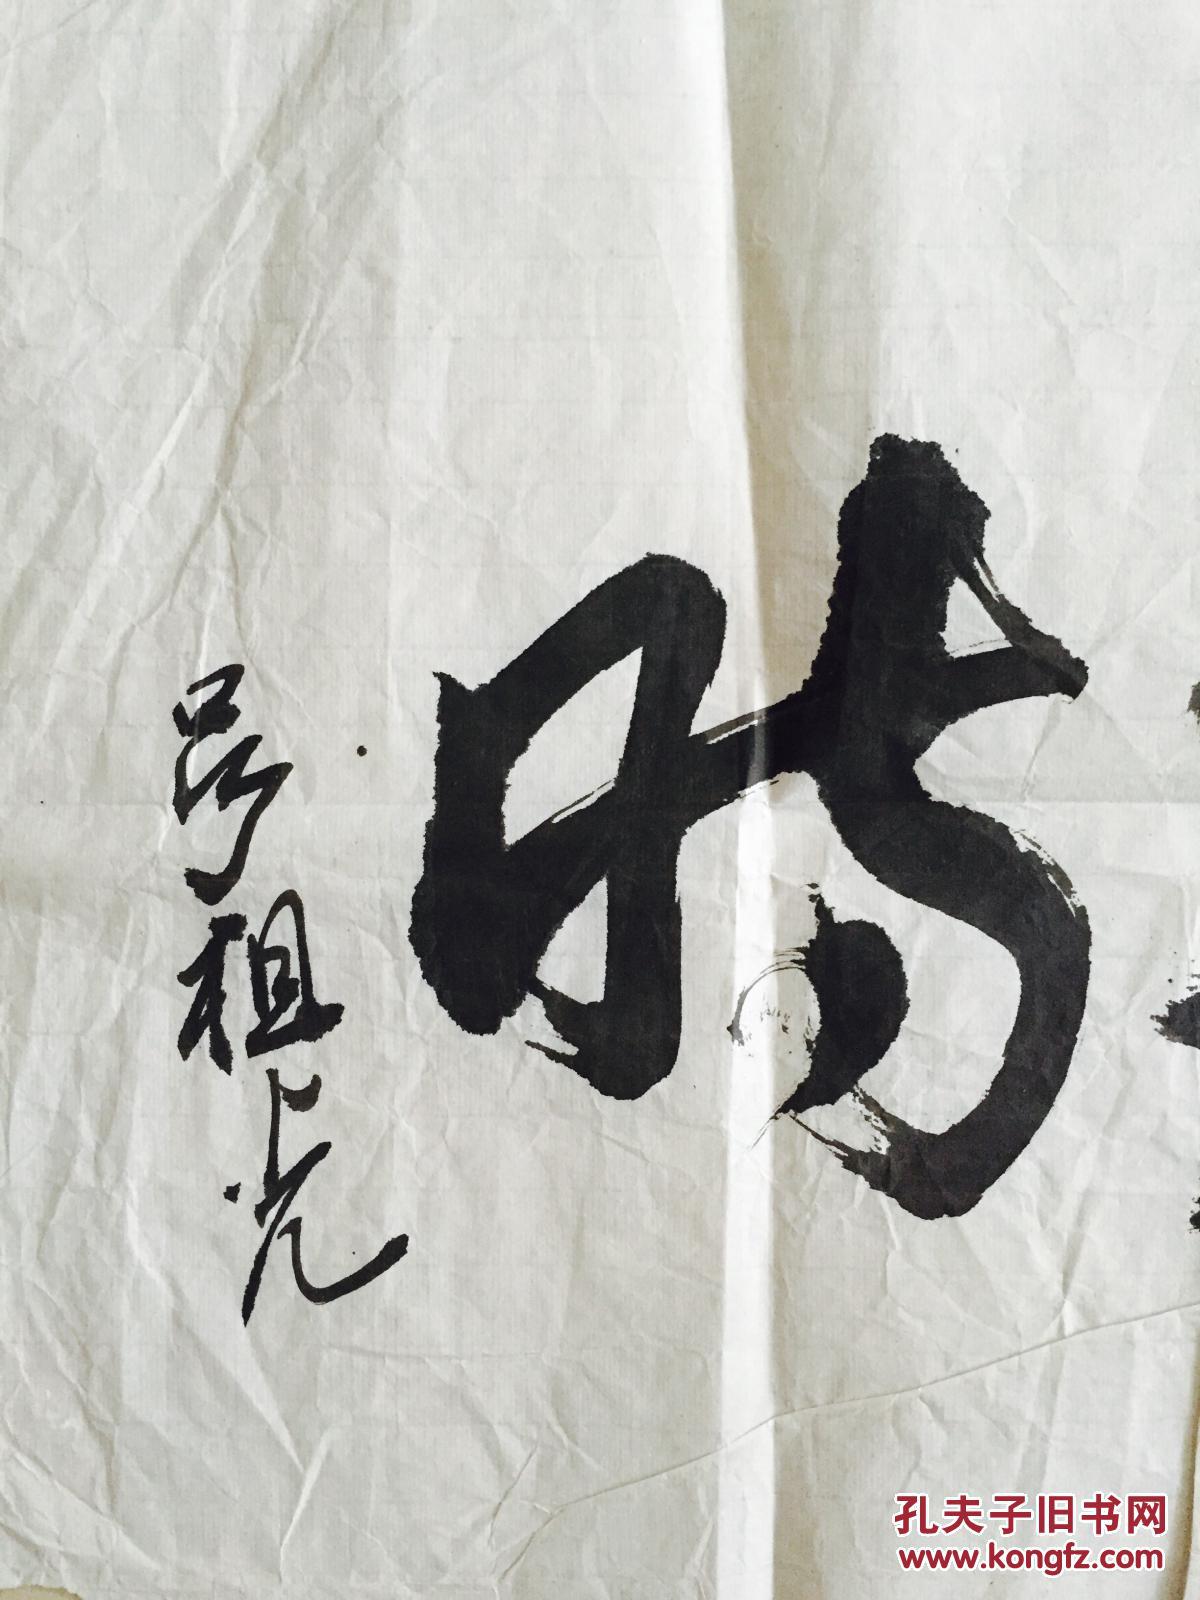 时
吴祖光
孔夫子旧书网
www.kongfz.com